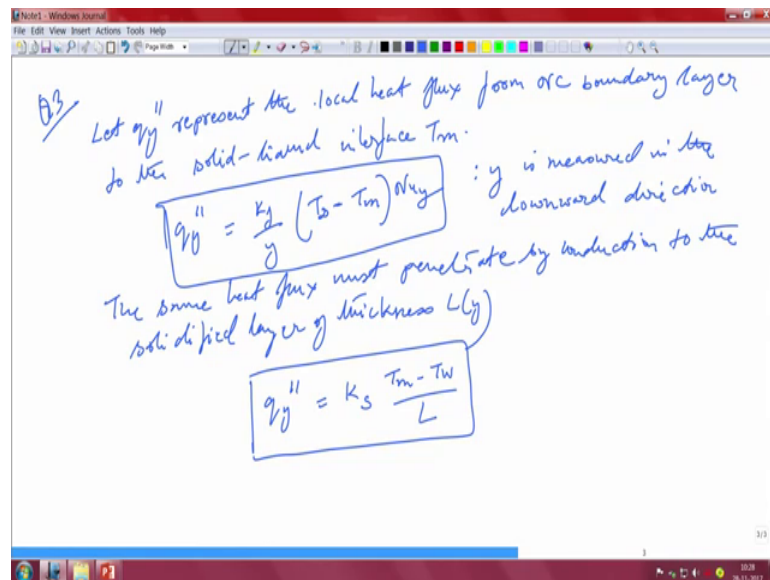 Note1 - Windows Journal
File Edit View Insert Actions Tools Help
Page Width
Q3
Let qy" represent the local heat flux from the boundary layer
to the solid-liquid interface Tm.
qy" = kf/y (T∞ - Tm) Nuy : y is measured in the
downward direction
The same heat flux must penetrate by conduction to the
solidified layer of thickness L(y)
qy" = ks (Tm - Tw)/L
3/3
3
10:28
28-11-2017